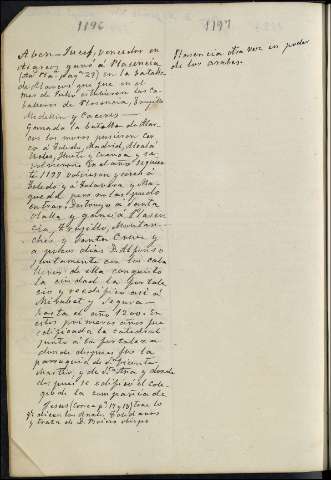 1196
Aben-Jucef, vencedor en
Alarcos ganó á Plasencia
pag. 29) en la batalla
de Alarcos que fue en el
mes de Julio estubieron los Ca-
balleros de Plasencia, Trujillo
Medellin y Caceres—
Ganada la batalla de Alar-
cos los moros pusieron cer-
co á Toledo, Madrid, Alcalá
Huete y Cuenca y se
volvieron. En el año siguien-
te 1197 volvieron y cercó á
Toledo y á Talavera y Ma-
queda, pero no las pudo
entrar. Destruyó á Santa
Olalla y ganó á Plasen-
cia, Trujillo, Montan-
chez y Santa Cruz, y
a pocos dias D. Alfonso
juntamente con los caba
lleros de ella conquistó
la ciudad, la fortale
ció y reedificó asi á
Mirabel y Segura—
hasta el año 1200. En
estos primeros años fue
edificada la catedral
junto á la fortaleza
donde despues fue la
parroquia de S. Vicente
Martir, y de Sta Ana y donde
despues se edificó el Cole-
gio de la compañia de
Jesus (Correa pº 17 y 18) todo lo
dicen los Anales Toledanos
y trata de D. Bricio obispo
1197
Plasencia otra vez en poder
de los arabes.